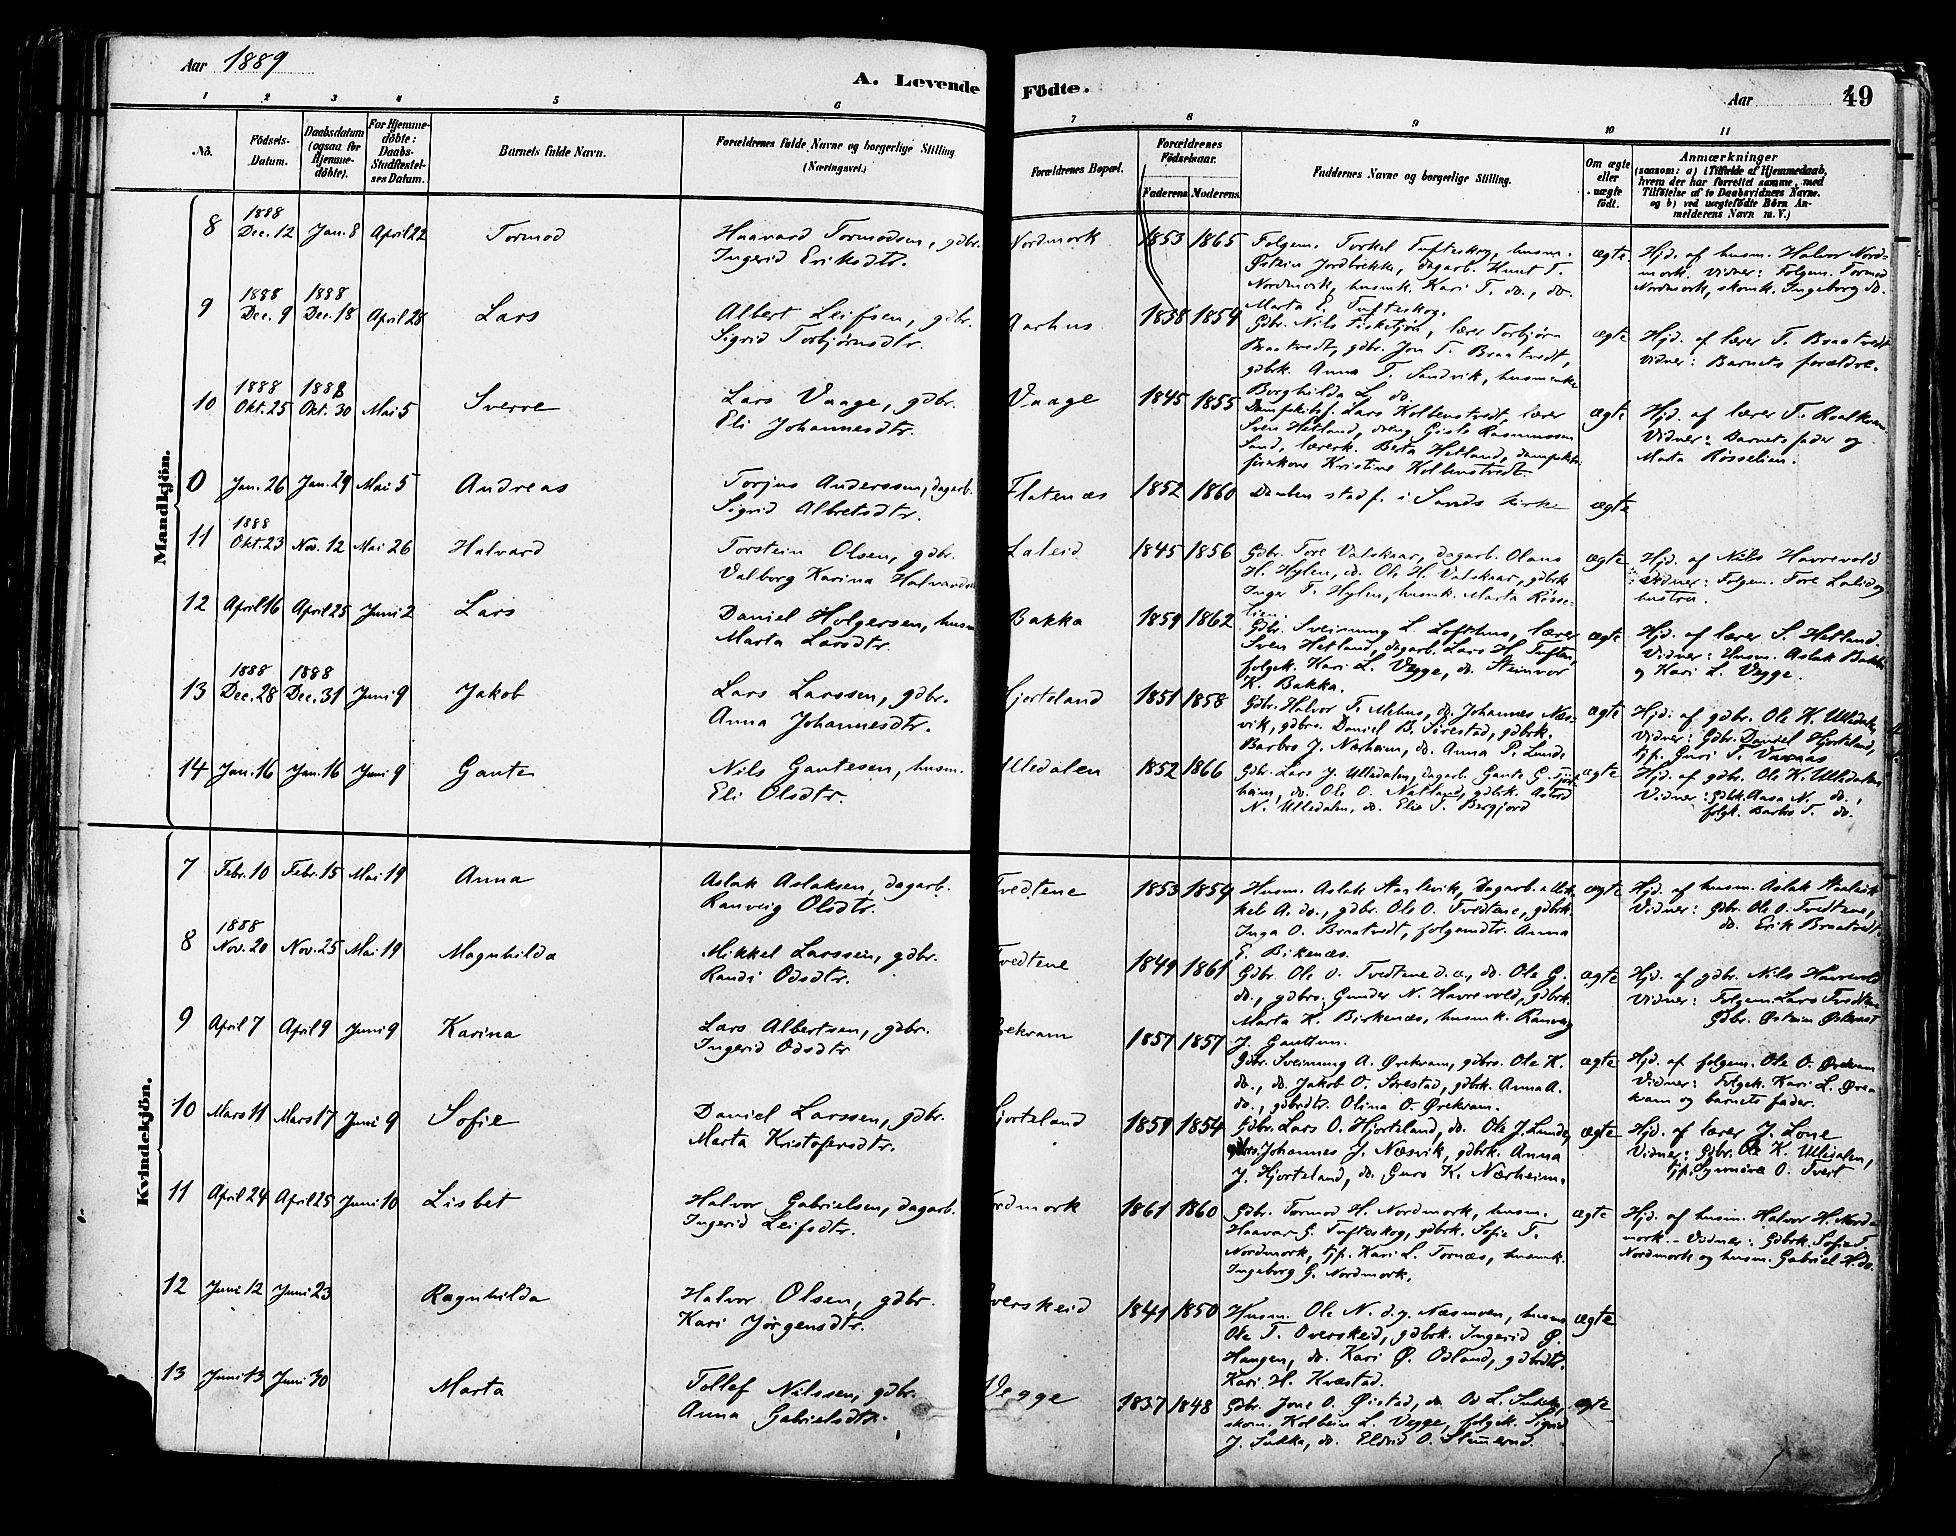 Aar 1889
A. Levende Födte.
Aar
49
1 2 3 4 5 6 7 8 9 10 11
No.
Födsels-Datum.
Daabsdatum (ogsaa for Hjemmedöbte).
For Hjemmedöbte: Daabs-Stadfæstelses Datum.
Barnets fulde Navn.
Forældrenes fulde Navne og borgerlige Stilling (Næringsvei.)
Forældrenes Bopæl.
Forældrenes Födselsaar.
Faderens. Moderens.
Faddernes Navne og borgerlige Stilling.
Om ægte eller uægte födt.
Anmærkninger
(saasom: a) i Tilfælde af Hjemmedaab,
hvem der har forrettet samme, med
Tilföielse af to Daabsvidners Navne.
og b) ved uægtefödte Börn Anmelderens Navn m. V.)
Mandkjön.
8 1888 Dec. 12 Jan. 8 April 22 Tormod
Haavard Tormodsen, gdbr.
Ingerid Eriksdtr.
Nordmork 1853 1865
Folgem. Torkel Tufteskog, husm.
Østein Jordbrekke, dagarb. Knut T.
Nordmork, husmk. Kari T. do., do.
Marta E. Tufteskog.
ægte
Hjd. af husm. Halvor Nordmork. Vidner: Folgem. Tormod
Nordmork, skomk. Ingeborg do.
9 1888 Dec. 9 1888 Dec. 18 April 28 Lars
Albert Leifsen, gdbr.
Sigrid Torbjørnsdtr.
Aarhus 1858 1854
Gdbr. Nils Fisketjøn, lærer Torbjørn
Braatvedt, gdbr. Jon T. Braatvedt,
gdbrk. Anna T. Sandvik, husmenke
Borghilda L. do.
ægte
Hjd. af lærer T. Braatvedt
Vidner: Barnets forældre.
10 1888 Okt. 25 1888 Okt. 30 Mai 5 Sverre
Lars Vaage, gdbr.
Eli Johannesdtr.
Vaage 1845 1855
Dampskibsf. Lars Kolbenstvedt, lærer
Sven Hetland, dreng Gisle Rasmussen
Sand, lærerk. Berta Hetland, dampskbs-
førerkone Kristine Kolbenstvedt.
ægte
Hjd. af lærer T. Roalkvam
Vidner: Barnets fader og
Marta Røsselien.
0 Jan. 26 Jan. 29 Mai 5 Andreas
Torjus Anderssen, dagarb.
Sigrid Albretsdtr.
Flatenæs 1852 1860
Daaben stadf. i Sands kirke
ægte
11 1888 Okt. 23 Nov. 12 Mai 26 Halvard
Torstein Olsen, gdbr.
Valborg Karina Halvardsd
Laleid 1845 1856
Gdbr. Tore Valskaar, dagarb. Olaus
H. Hylen, do. Ole H. Valskaar, gdbrk
Inger T. Hylen, husmk. Marta Røsselien.
ægte
Hjd. af Nils Havrevold
Vidner: Folgem. Tore Laleid og
hustru.
12 April 16 April 25 Juni 2 Lars
Daniel Holgersen, husm
Marta Larsdtr.
Bakka 1859 1862
Gdbr. Sveinung L. Lofthus, lærer
Sven Hetland, dagarb. Lars H. Tuften,
folgek. Kari L. Vegge, do. Steinvor
K. Bakka.
ægte
Hjd. af lærer S. Hetland.
Vidner: Husm. Aslak Bakka
og Kari L. Vegge.
13 1888 Dec. 28 1888 Dec. 31 Juni 9 Jakob
Lars Larssen, gdbr.
Anna Johannesdtr.
Hjorteland 1851 1858
Gdbr. Halvor T. Mehus, do. Johannes Næsvik, gdbrs. Daniel B. Sørestad, gdbrk.
Barbro J. Nærheim, do. Anna P. Lunde
ægte
Hjd. af gdbr. Ole K. Ulledalen
Vidner: Gdbr. Daniel Hjorteland,
tjp. Guri T. Varnas
14 Jan. 16 Jan. 16 Juni 9 Gaute
Nils Gautesen, husm.
Eli Olsdtr.
Ulledalen 1852 1866
Gdbr. Lars J. Ulledalen, dagarb. Gaute G.
heim, do. Ole O. Natland, gdbrk. Astrid
N. Ulledalen, do. Eli T. Bergfjord
ægte
Hjd. af gdbr. Ole K. Ulledalen
Vidner: Gdbrk. Aasa N. do.,
folgk. Barbro T. do.
Kvindekjön.
7 Febr. 10 Febr. 15 Mai 19 Anna
Aslak Aslaksen, dagarb.
Ranveig Olsdtr.
Tvedtene 1853 1854
Husm. Aslak Haalevik, Dagarb. Mikkel A. do., gdbr. Ole O. Tvedtene, gdbrk.
Inga O. Braatvedt, folgemdtr. Anna
E. Birkenæs.
ægte
Hjd. af husm. Aslak Haalevik
Vidner: Gdbr. Ole O. Tvedtene,
do. Erik Braatvedt.
8 1888 Nov. 20 Nov. 25 Mai 19 Magnhilda
Mikkel Larssen, gdbr.
Randi Odsdtr.
Tvedtene 1849 1861
Gdbr. Ole O. Tvedtene d. æ., do. Ole G.
do., gdbrs. Gunder N. Havrevold, gdbrk.
Marta K. Birkenæs, husmk. Ranveig
J. Gauttun.
ægte
Hjd. af gdbr. Nils Havrevold
Vidner: Folgem. Lars Tvedtene
Gdbr. Østein
9 April 7 April 9 Juni 9 Karina
Lars Albertsen, gdbr.
Ingerid Odsdtr
Ørekvam 1857 1857
Gdbr. Sveinung A. Ørekvam, gdbrs. Ole K.
do., do. Jakob O. Sørestad, gdbrk. Anna A.
do., gdbrdtr. Olina O. Ørekvam.
ægte
Hjd. af folgem. Ole O. Ørekvam
Vidner: Folgek. Kari L. Ørekvam og barnets fader.
10 Mars 11 Mars 17 Juni 9 Sofie
Daniel Larssen, gdbr.
Marta Kristofersdtr.
Hjorteland 1859 1854
Gdbr. Lars O. Hjorteland, do. Ole J. Lunde,
Johannes J. Næsvik, gdbrk. Anna
J. Hjorteland, do. Guro K. Nærheim.
ægte
Hjd. af lærer J. Lone
Vidner: Gdbr. Ole K. Ulledalen,
tjp. Synnøve O. Tveit
11 April 24 April 25 Juni 10 Lisbet
Halvor Gabrielsen, dagarb.
Ingerid Leifsdtr.
Nordmork 1861 1860
Gdbr. Tormod H. Nordmork, husm.
Haavar G. Tufteskog, gdbrk. Sofie T.
Nordmork, tjp. Kari L. Tornæs, husmk.
Ingeborg G. Nordmork.
ægte
Hjd. af husm. Halvor H. Nordmork. - Vidner: Gdbrk. Sofie T.
Nordmork og husm. Gabriel H. do.
12 Juni 12 Juni 23 Ragnhilda
Halvor Olsen, gdbr.
Kari Jørgensdtr.
Overskeid 1841 1850
Husm. Ole N. d.y. Næsmoen, husm
Ole T. Overskeid, gdbrk. Ingerid Ø.
Haugen, do. Kari Ø. Odland, gdbrdtr.
Kari H. Kvæstad.
ægte
13 Juni 13 Juni 30 Marta
Tollef Nilssen, gdbr.
Anna Gabrielsdtr.
Vegge 1837 1848
Gdbr. Jone O. Øistad, do. Od L. Sukka,
skom. Kolbein L. Vegge, folgek. Sigrid
J. Sukka, do. Eldrid O.
ægte